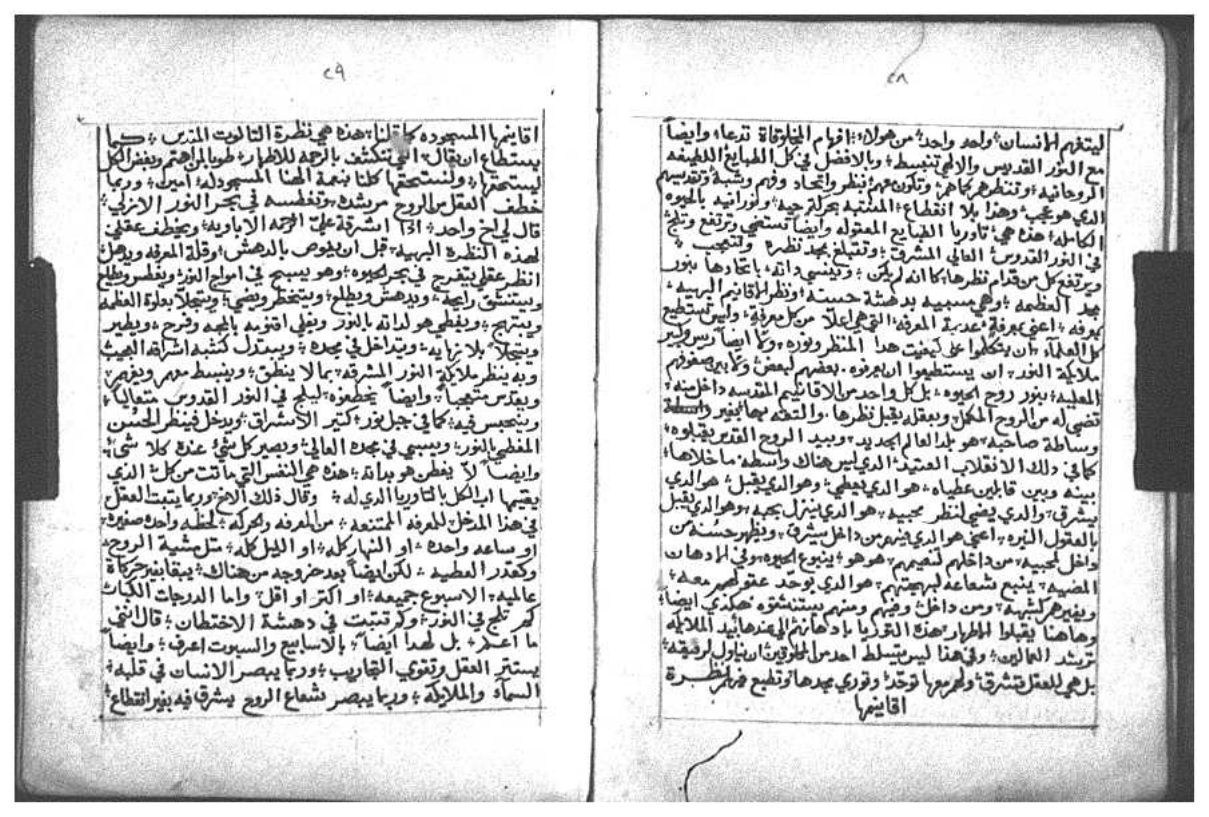 ٢٨
ليتفهم الانسان واحد واحد من هولاء افهام المخلوقاة تدعا وايضاً
مع النور القديس والالهي تنبسط وبالافضل في كل الطبايع اللطيفه
الروحانيه وتنظرهم كماهم وتكون معهم بنظر واتحاد وفهم وشبة وتقديسهم
الدي هو عجب وهدا بلا انقطاع المشتبه بحركة حيه ولورانيه بالحيوه
الكامله هده هي تاوريا الطبايع المعقوله وايضاً تستضي وترتفع وتلج
في النور القدوس العالي المشرق وتقتبلغ بمجد نظره وتتعجب
ويرتفع كل من قدام نظرها كانه لم يكن وتنسى داته باتحادها بنور
مجد العظمه وهي مسبيه بدهشة حسنه ونظر الاقانيم البهيه
بمعرفه اعني بمعرفة عديمة المعرفه التي هي اعلا من كل معرفة وليس تستطيع
كل العلمآء ان يتكلموا على كيفيت هدا المنظر ونوره وكما ايضاً ريس وليس
ملايكة النور ان يستطيعوا ان يعرفوه بعضهم لبعض ولا بين صفوفهم
المعليه بنور روح الحيوه بل كل واحد من الاقانيم المقدسه داخل منه
تضي له من الروح المكمل وبعقله يقبل نظرها والتفقه بها بغير واسطة
وساطة صاحبه هو بلد العالم الجديد وبيد الروح القدس يقبلوه
كما في دلك الانقلاب العتيد الدي ليس هناك واسطه ما خلاها
بينه وبين قابلين عطياه هو الدي يعطي وهو الدي يقبل هو الدي
يشرق والدي يضي لنظر محبيه هو الدي ينزل بحبه وهو الدي يقبل
بالعقول النيره اعني هو الدي فيهم من داخل يشرق ويظهر حسنه من
داخل لمحبيه من داخلهم لنعيمهم هو هو ينبوع الحيوه وفي الادهان
المضيه ينبع شعاعه لبهجتهم هو الدي يوحد عقولهم معه
ويغيرهم كشبهه ومن داخل وفيهم ومنهم يستنشقوه هكدي ايضاً
وهاهنا يقبلوا الاطهار هده التوريا بادهانهم الي عندها بيد الملايكه
ترشد العمالين وفي هدا ليس يتسلط احد من المخلوقين ان يناول لرفيقه
بل هي للعقل تشرق ولهم معها توحد وتوري مجدها وتطبع فيهم نظرة
اقانيمها
٢٩
اقانيمها المسجوده كما قلنا هده هي نظرة التالوت المقدس كما
يستطاع ان يقال التي تنكشف بالرحمه للاطهار طوبا لمن اهتم وبغض الكل
ليستحقها ولنستحقها كلنا بنعمة الهنا المسجود له امين وربما
خطف العقل من الروح مرشده وتغطسه في بحر النور الازلي
قال لي اخ واحد ادا اشرقة علي الرحمه الاباويه ويخطف عقلي
لهده النظرة البهيه قبل ان يغوص بالدهش وقلة المعرفه ويدهل
انظر عقلي يتفرج في بحر الحيوه وهو يسبح في امواج النور ويغطس ويطلع
ويستنشق رايحه ويدهش ويطلع ويتخطر ويضي ويتجلا بعلوة العظمه
ويبتهج ويغطي هو لداته بالنور ويغلي اقنومه بالمحبه وفرح ويطير
ويتجلا بلا نهايه ويتداخل في مجده ويستدل كشبه اشراقه البهيت
وبه ينظر ملايكة النور المشرقه بما لا ينطق وينبسط معهم ويفرح
ويقدس متعجباً وايضاً يخطفوه ليلج في النور القدوس متعالياً
ويتحبس فيه كما في جبل نور كتير الاشراق ويدخل فينظر الحسن
المغطي بالنور ويسبي في مجده العالي ويصير كل شئ عنده كلا شئ
وايضاً لا يفطن هو بداته هده هي النفس التي ماتت من كل الدي
يقيتها اب الكل بالتاوريا الدي له وقال دلك الاخ وربما يتبت العقل
في هدا المدخل للمعرفه الممتنعه من المعرفه والحركه لحظه واحده صغيره
او ساعه واحده او النهار كله او الليل كله متل مشية الروح
وكقدر العطيه لكن ايضاً بعد خروجه من هناك يبقا بغير حركاة
عالميه الاسبوع جميعه او اكتر او اقل واما الدرجات الكبات
كم تلج في النور وكم تتبت في دهشة الاختطان قال انني
ما اعلم بل لهدا ايضاً بالاسابيع والسبوت اعرف وايضاً
يستتر العقل وتقوي التجاريب وربما يبصر الانسان في قلبه
السمآء والملايكة وربما يبصر شعاع الروح يشرق فيه بغير انقطاع